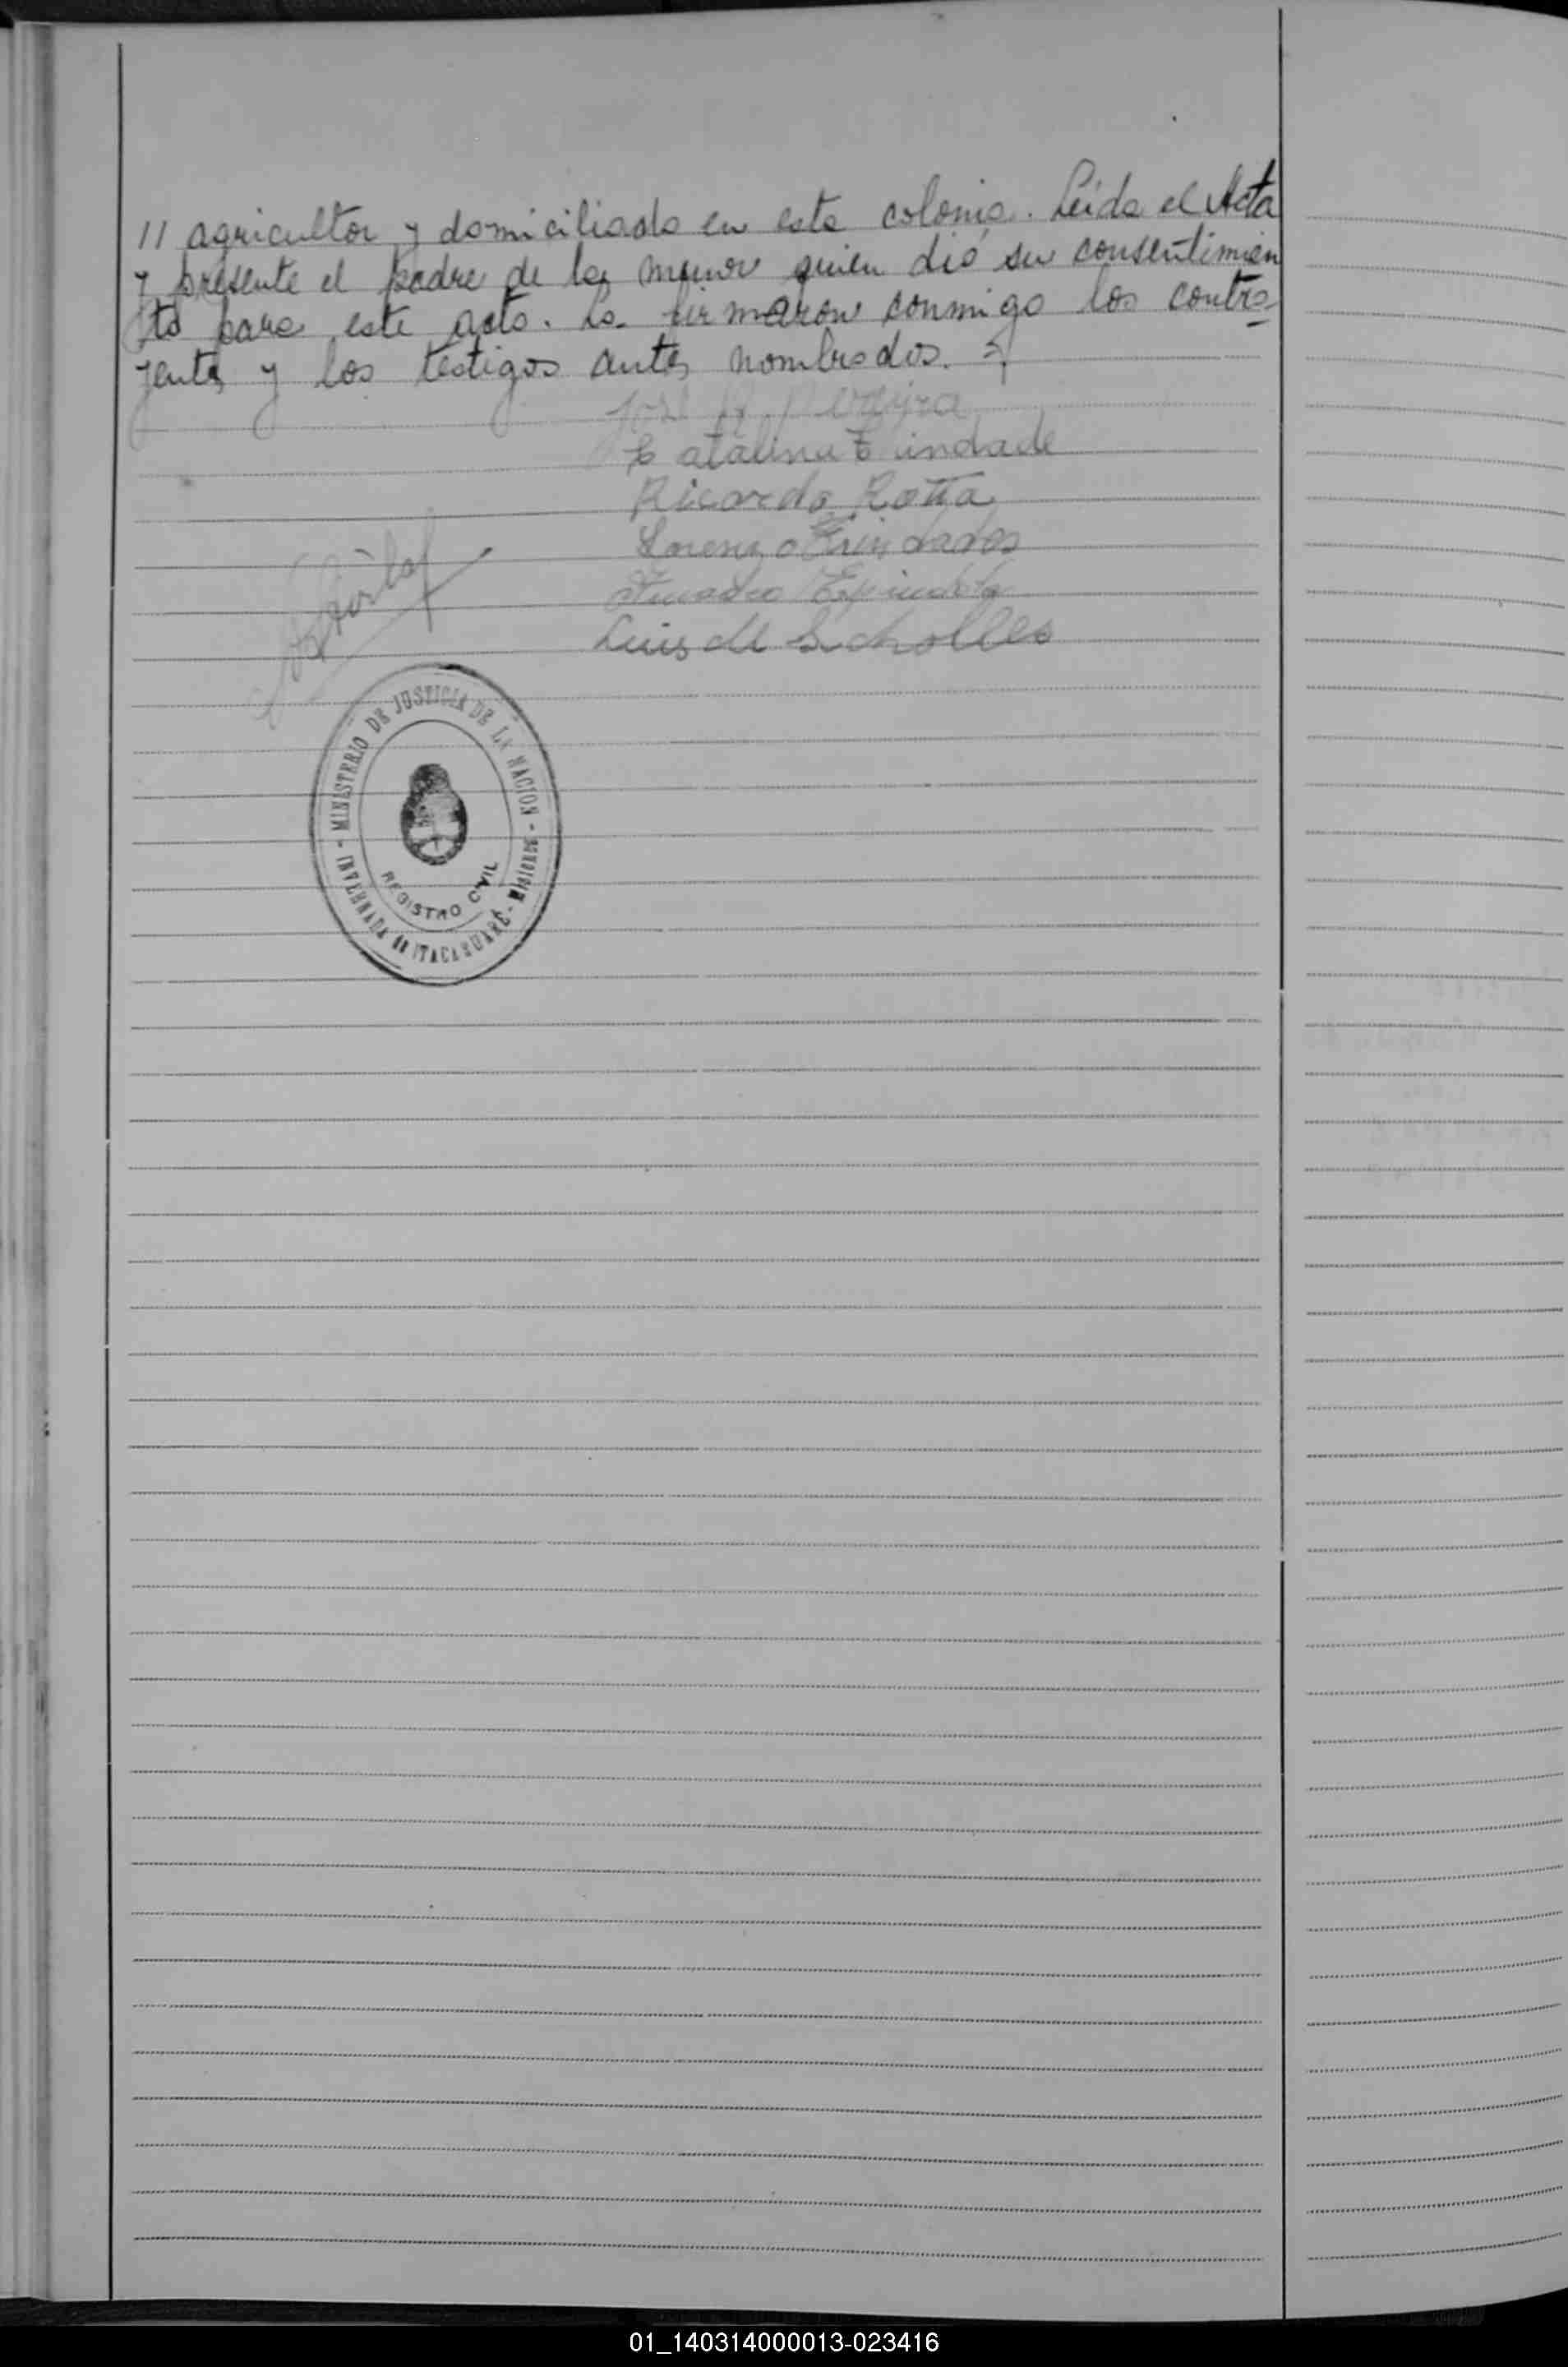 // agricultor y domiciliado en esta colonia. Leída el Acta
y presente el padre de la menor quien dió su consentimien
to para este acto. La firmaron conmigo los contra-
yentes y los testigos antes nombrados.
José
Catalina Trindade
Ricardo Rotta
Lorenzo Trindades
Espindola
Luis M Scholles
- MINISTERIO DE JUSTICIA DE LA NACION -
REGISTRO CIVIL
INVERNADA de ITACARUARÉ - MISIONES -
01_140314000013-023416